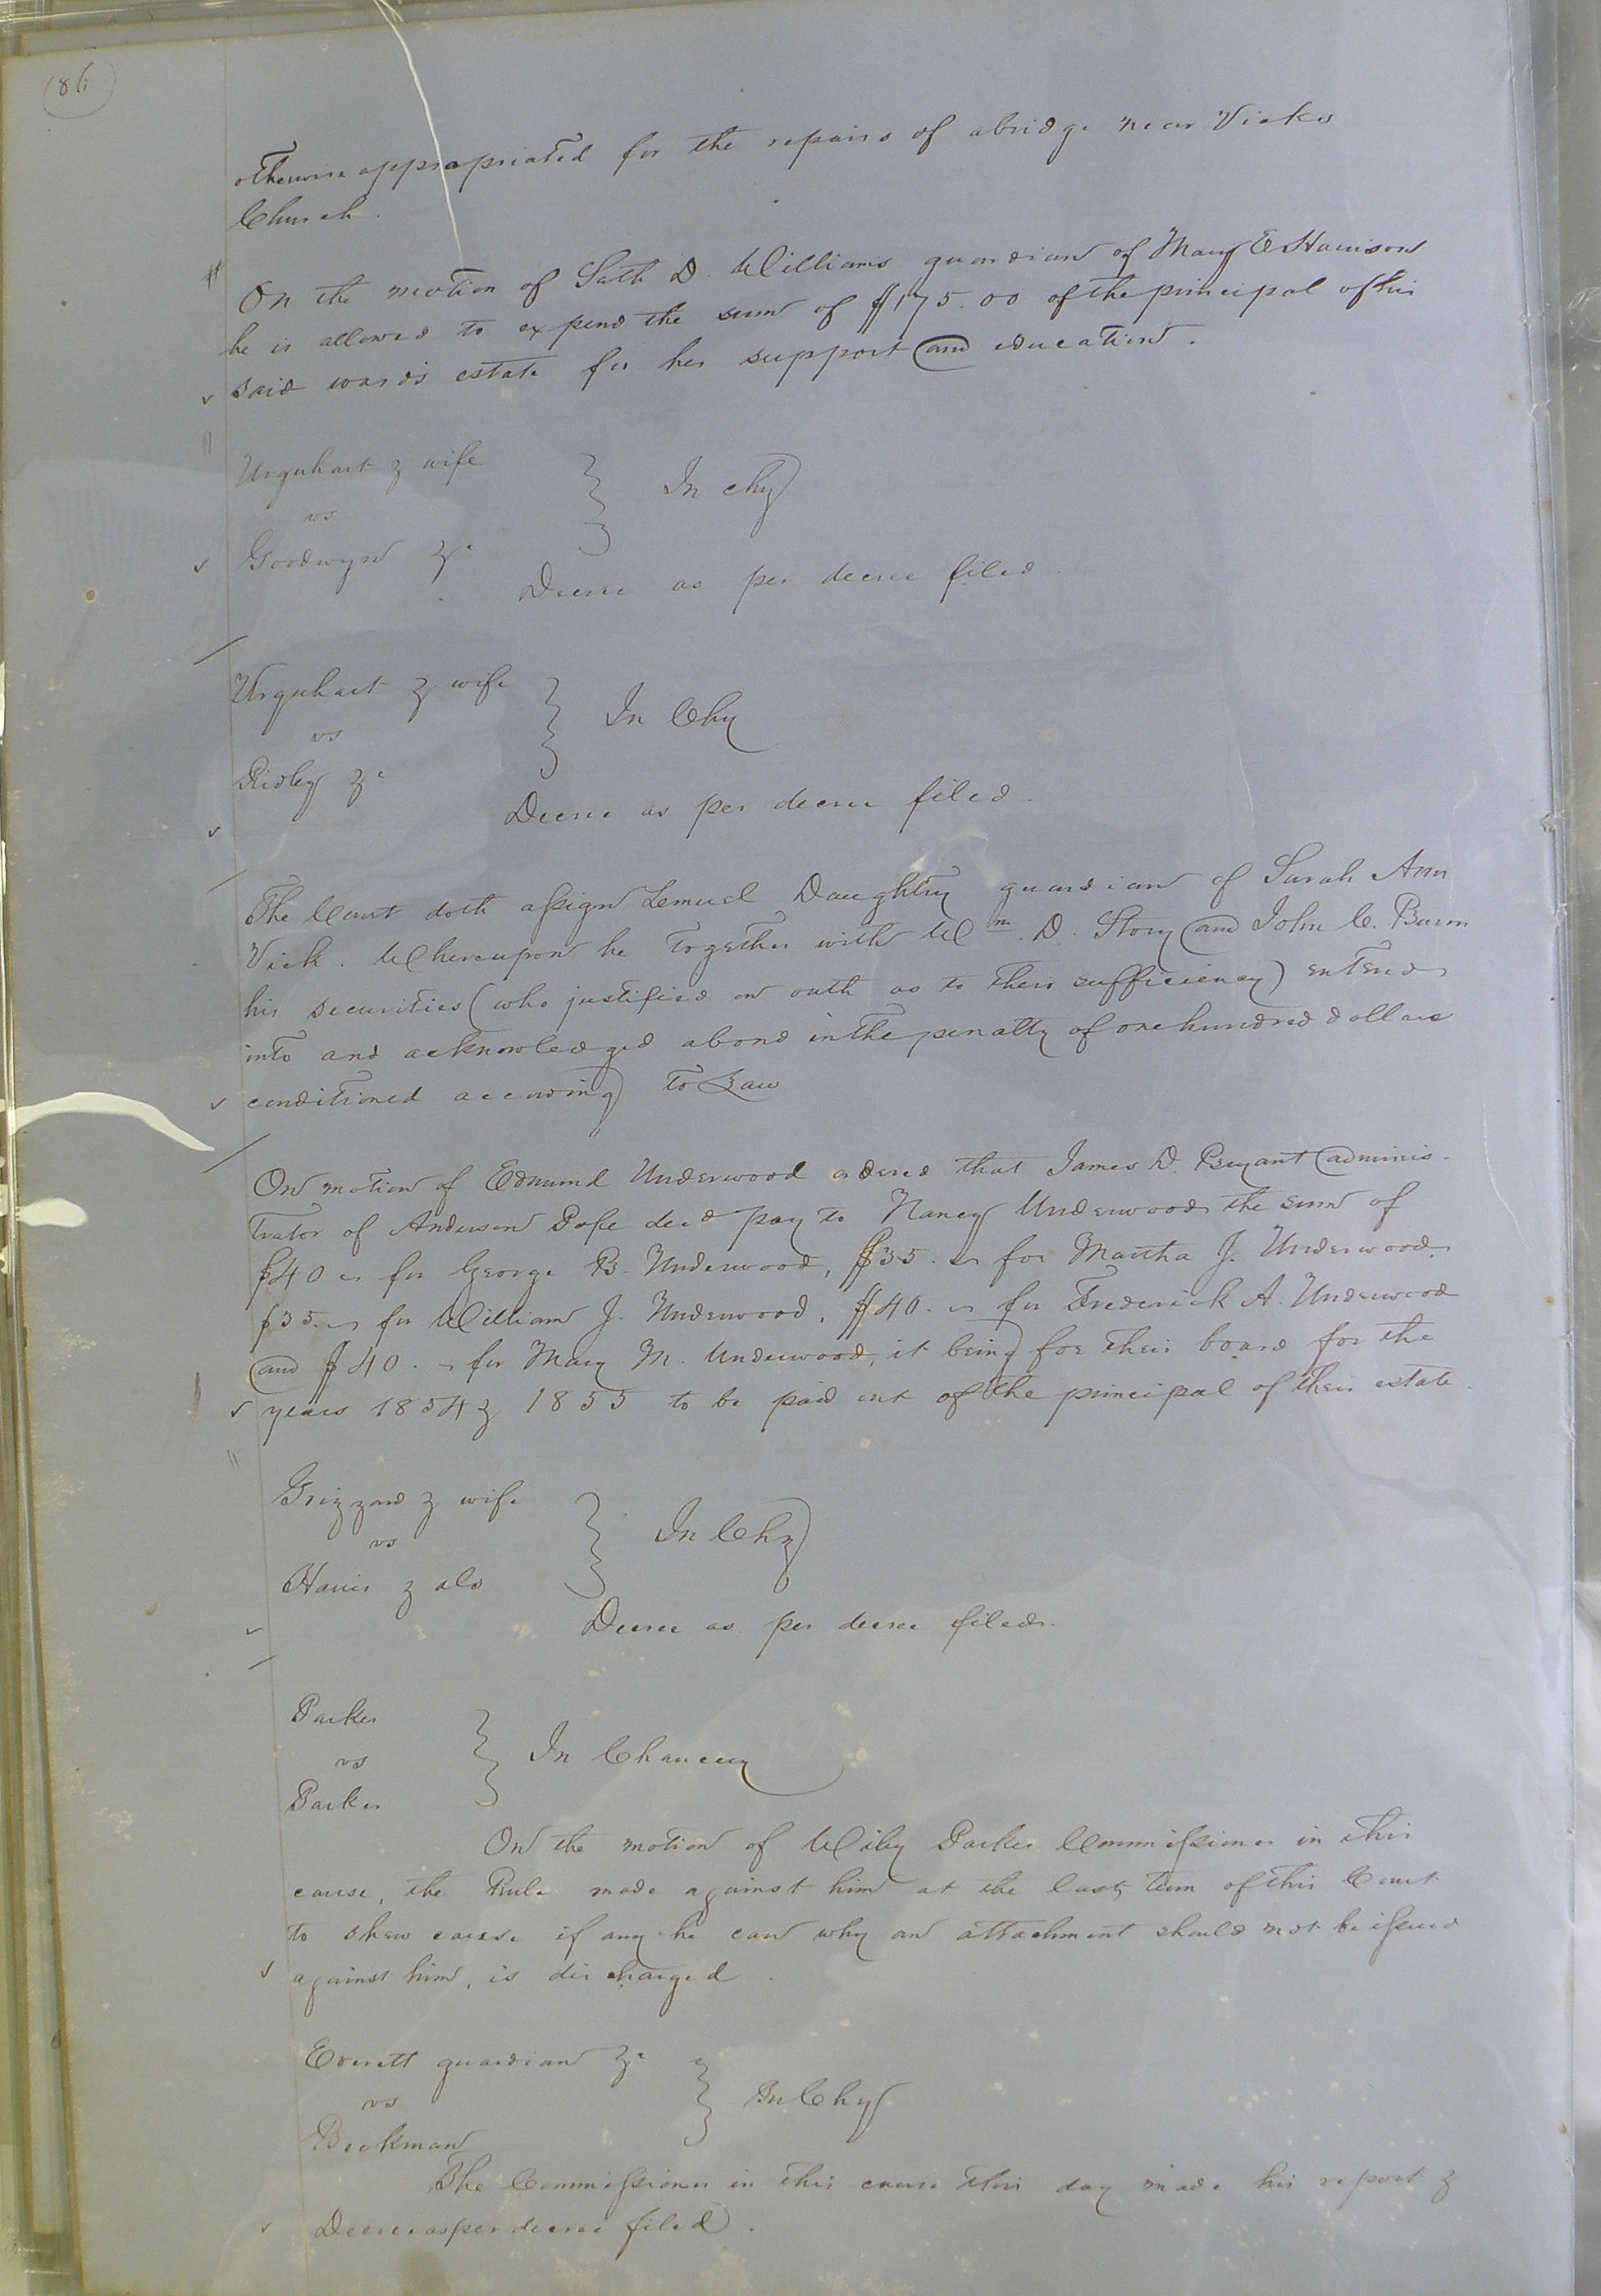 86
otherwise appropriated for the repairs of a bridge near Vicks
Church.
On the motion of Seth D. Williams guardian of Mary E Harrison
he is allowed to expend the sum of $175.00 of the principal of his
said ward's estate for her support and education.
Urquhart & wife
vs
Goodwyn &c
In chy
Decree as per decree filed.
Urquhart & wife
vs
Ridley &c
In Chy
Decree as per decree filed.
The Court doth assign Lemuel Daughtry guardian of Sarah Ann
Vick. Whereupon he together with Wm. D. Story and John C.
his securities (who justified on oath as to their sufficiency) entered
into and acknowledged a bond in the penalty of one hundred dollars
conditioned according to Law
On motion of Edmund Underwood ordered that James D. Bryant adminis-
trator of Anderson Pope decd pay to Nancy Underwood the sum of
$40 for George B. Underwood, $35. for Martha J. Underwood.
$35. for William J. Underwood, $40. for Frederick A. Underwood
and $40. for Mary M. Underwood, it being for their board for the
years 1854 & 1855 to be paid out of the principal of their estate.
Grizzard & wife
vs
Harris & als
In Chy
Decree as per decree filed.
Parker
vs
Parker
In Chancery
On the motion of Wiley Parker Commissioner in this
cause, the Rule made against him at the last term of this Court
to shew cause if any he can why an attachment should not be issued
against him, is discharged.
Everett guardian &c
vs
Beckman
In Chy
The Commissioner in this cause this day made his report &
Decree as per decree filed.